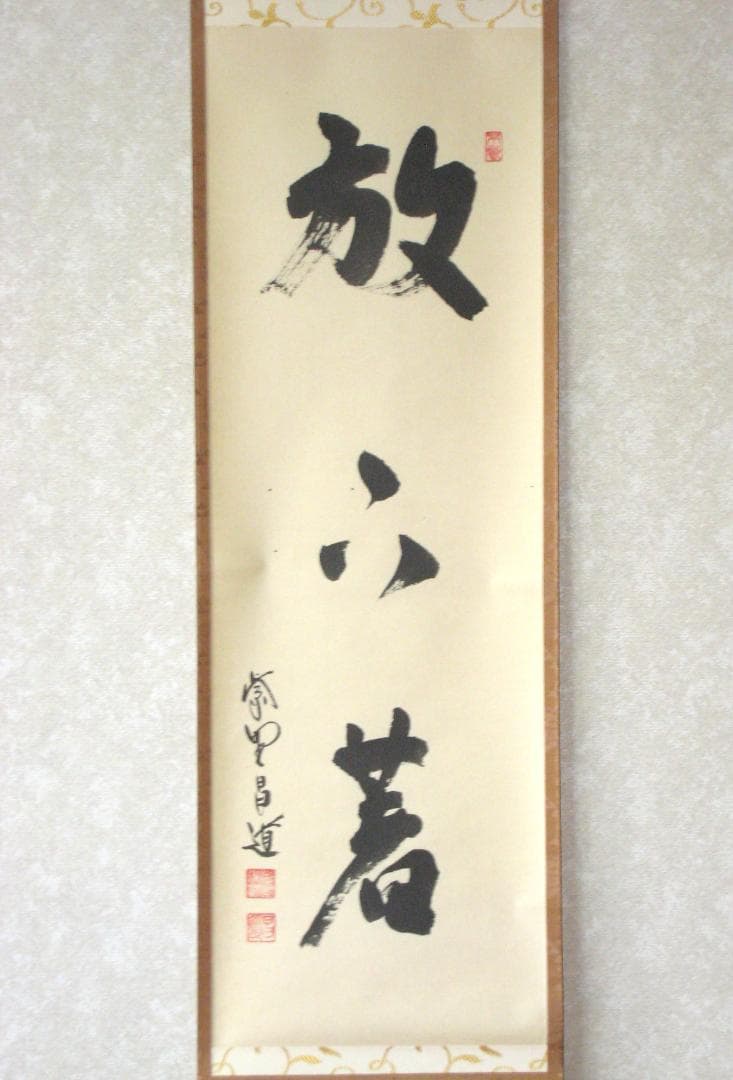 放下著
紫野昌道